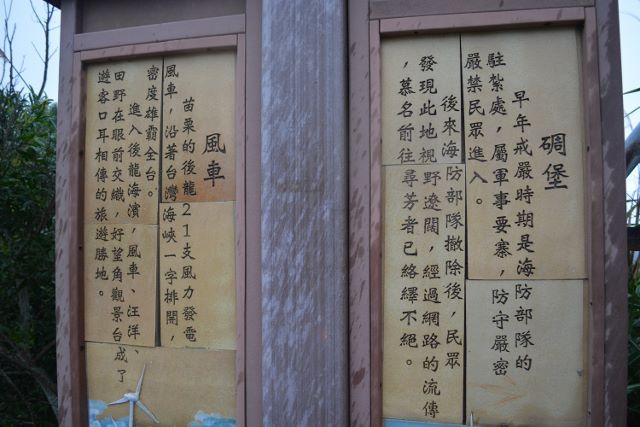 碉堡
早年戒嚴時期是海防部隊的
駐紮處，屬軍事要寨，防守嚴密
嚴禁民眾進入。
後來海防部隊撤除後，民眾
發現此地視野遼闊，經過網路的流傳
，慕名前往尋芳者已絡繹不絕。
風車
苗栗的後龍21支風力發電
風車，沿著台灣海峽一字排開，
密度雄霸全台。
進入後龍海濱，風車、汪洋、
田野在眼前交織，好望角觀景台成了
遊客口耳相傳的旅遊勝地。